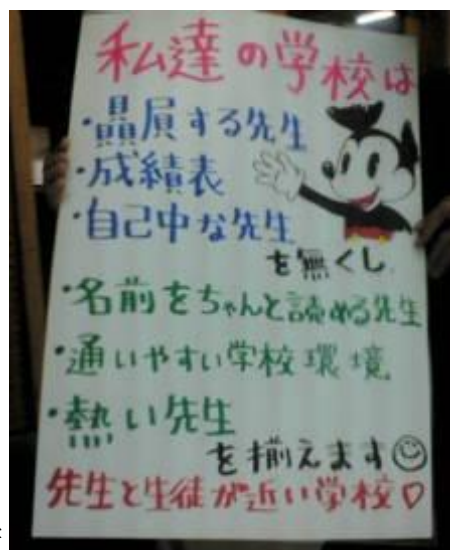 私達の学校は
・贔屓する先生
・成績表
・自己中な先生
を無くし
・名前をちゃんと読める先生
・通いやすい学校環境
・熱い先生
を揃えます☺
先生と生徒が近い学校♡